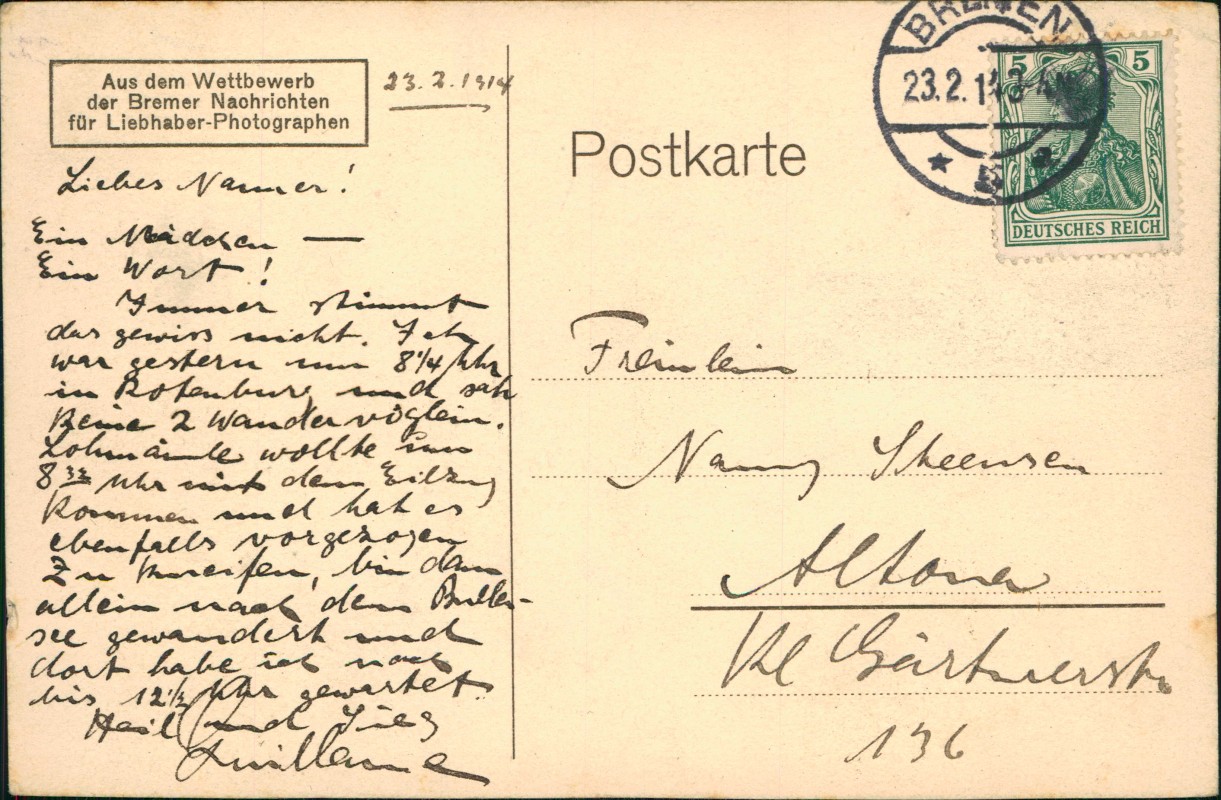 Aus dem Wettbewerb
der Bremer Nachrichten
für Liebhaber-Photographen
23.2.1914
Liebes Nanner!
Ein Mädchen —
Ein Wort!
Immer stimmt
das gewiss nicht. Ich
war gestern um 8 1/4 Uhr
in Rotenburg und sah
keine 2 Wandervöglein.
wollte um
8 32 Uhr mit dem Eilzug
kommen und hat es
ebenfalls vorgezogen
zu kneifen, bin dann
allein nach dem Buller-
see gewandert und
dort habe ich noch
bis 12 1/2 Uhr gewartet.
Heil und Sieg
Postkarte
BREMEN
23.2.14
* 5 a
5 5
DEUTSCHES REICH
Fräulein
Nanny
Altona
Kl Gärtnerstr.
136